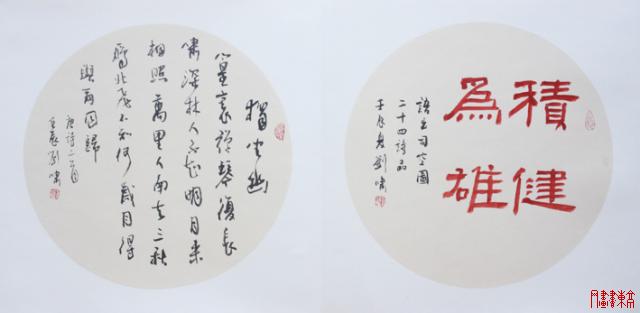 積健
為雄
語出司空圖
二十四詩品
壬辰夏劉嘯
獨坐幽
篁裏彈琴復長
嘯深林人不知明月來
相照萬里人南去三秋
雁北飛不知何歲月得
與爾同歸
唐詩二首
壬辰劉嘯